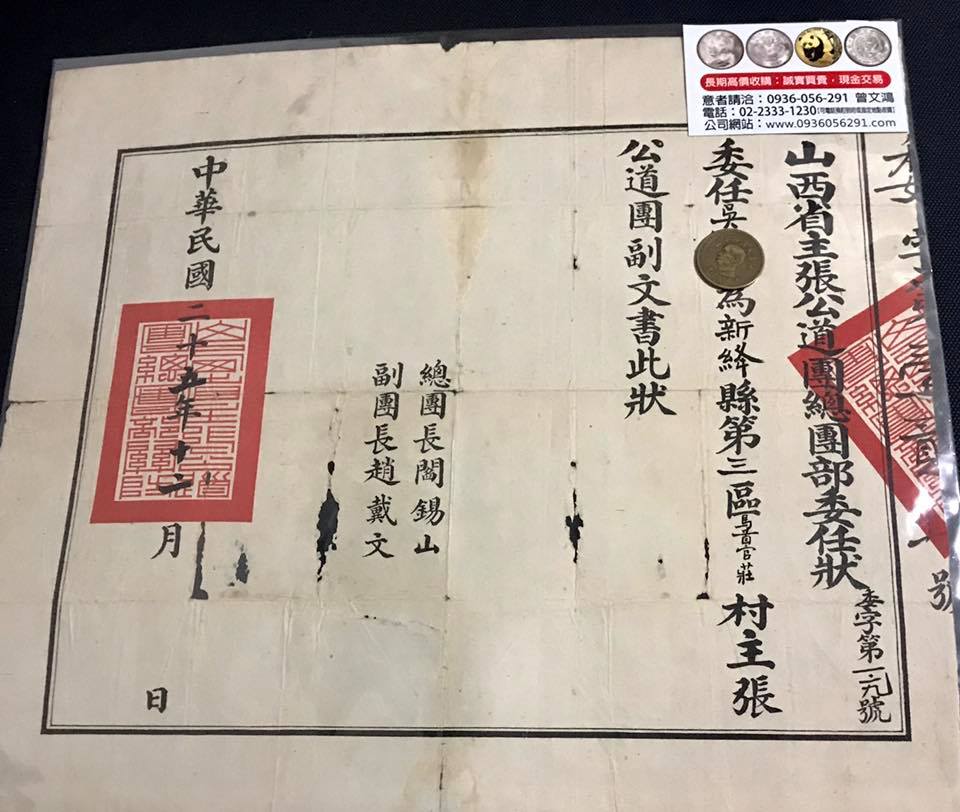 長期高價收購：誠實買賣，現金交易
意者請洽：0936-056-291 曾文鴻
電話：02-2333-1230
公司網站：www.0936056291.com
山西省主張公道團總團部委任狀
委字第一六九號
委任吳
為新絳縣第三區
官莊
村主張
公道團副文書此狀
總團長閻錫山
副團長趙戴文
中華民國二十五年十二月
日
號